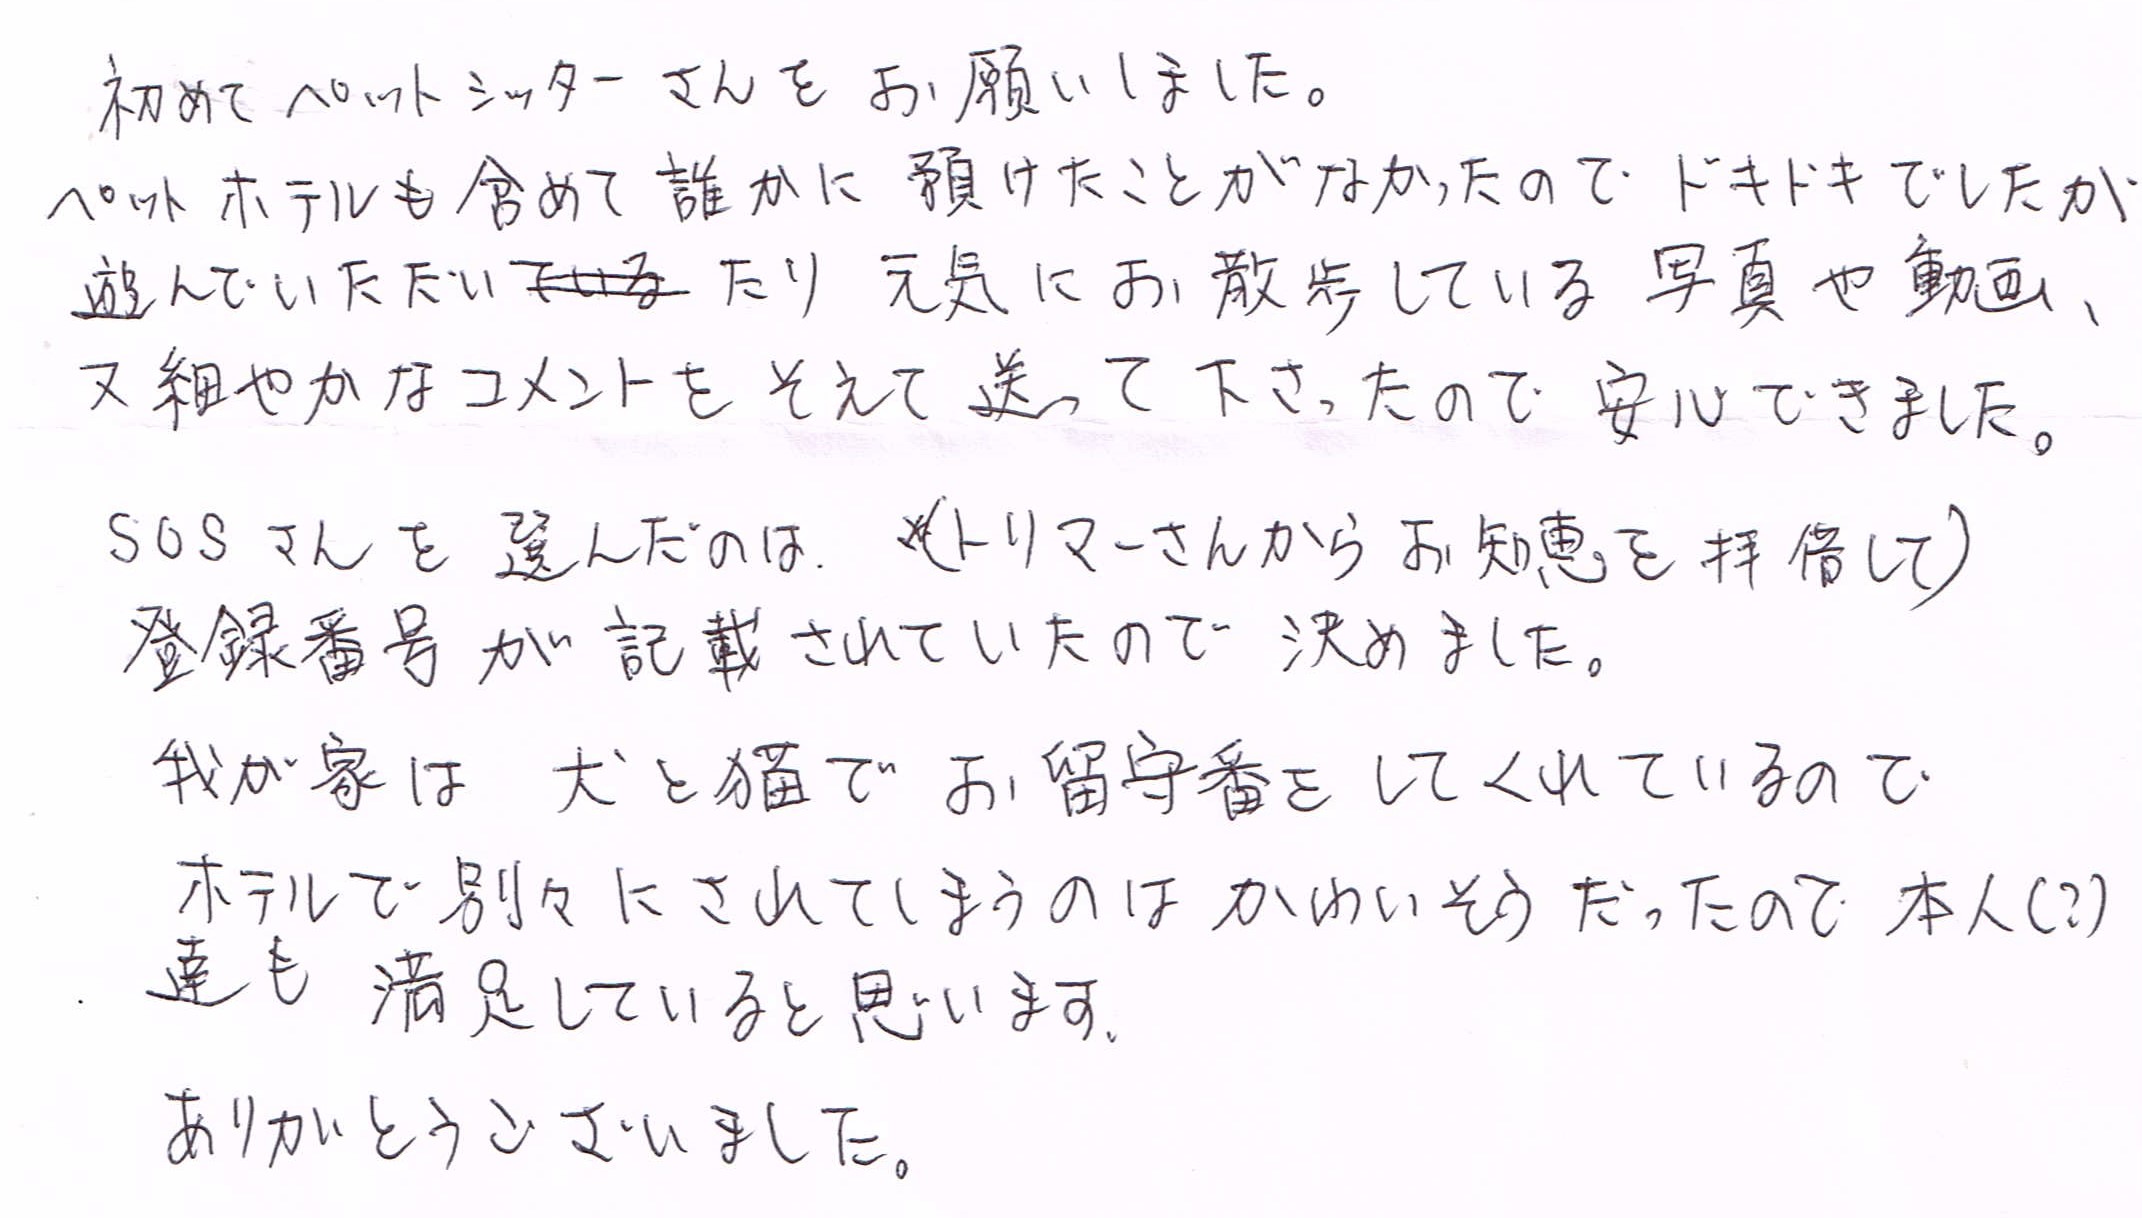 初めてペットシッターさんをお願いしました。
ペットホテルも含めて誰かに預けたことがなかったのでドキドキでしたが
遊んでいただいたり元気にお散歩している写真や動画、
又細やかなコメントをそえて送って下さったので安心できました。
SOSさんを選んだのは、(トリマーさんからお知恵を拝借して)
登録番号が記載されていたので決めました。
我が家は 犬と猫でお留守番をしてくれているので
ホテルで別々にされてしまうのはかわいそうだったので本人(?)
達も 満足していると思います。
ありがとうございました。